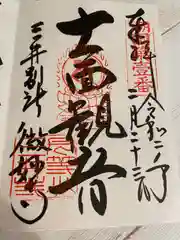 第壹番
奉拝 令和二年
二月二十三日
十一面観音
三井別所
微妙寺